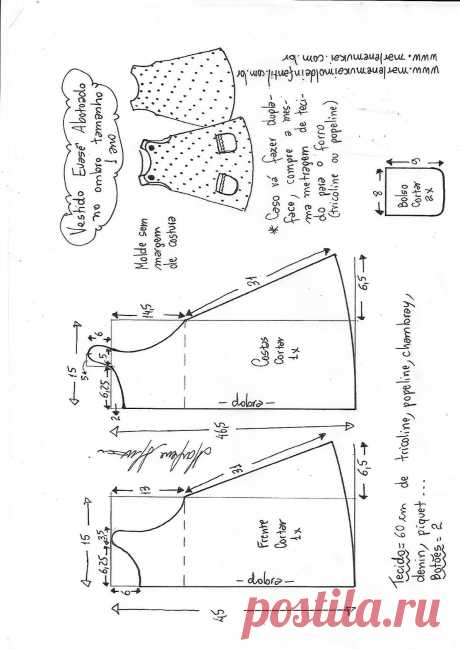 Vestido Evasê Abotoado
no ombro tamanho
1 ano
www.marlenemukaimoldeinfantil.com.br
www.marlenemukai.com.br
* Caso vá fazer dupla-
face, compre a mes-
ma metragem de teci-
do para o forro
(tricoline ou popeline)
Molde sem
margem
de costura
9
8
Bolso
Cortar
2x
15
6
5
5
6,25
2
14,5
31
6,5
Costas
Cortar
1x
dobra
46,5
Marlene Mukai
15
3,5
6,25
6
13
31
6,5
Frente
Cortar
1x
dobra
45
Tecido = 60 cm de tricoline, popeline, chambray,
denin, piquet...
Botões = 2
postila.ru